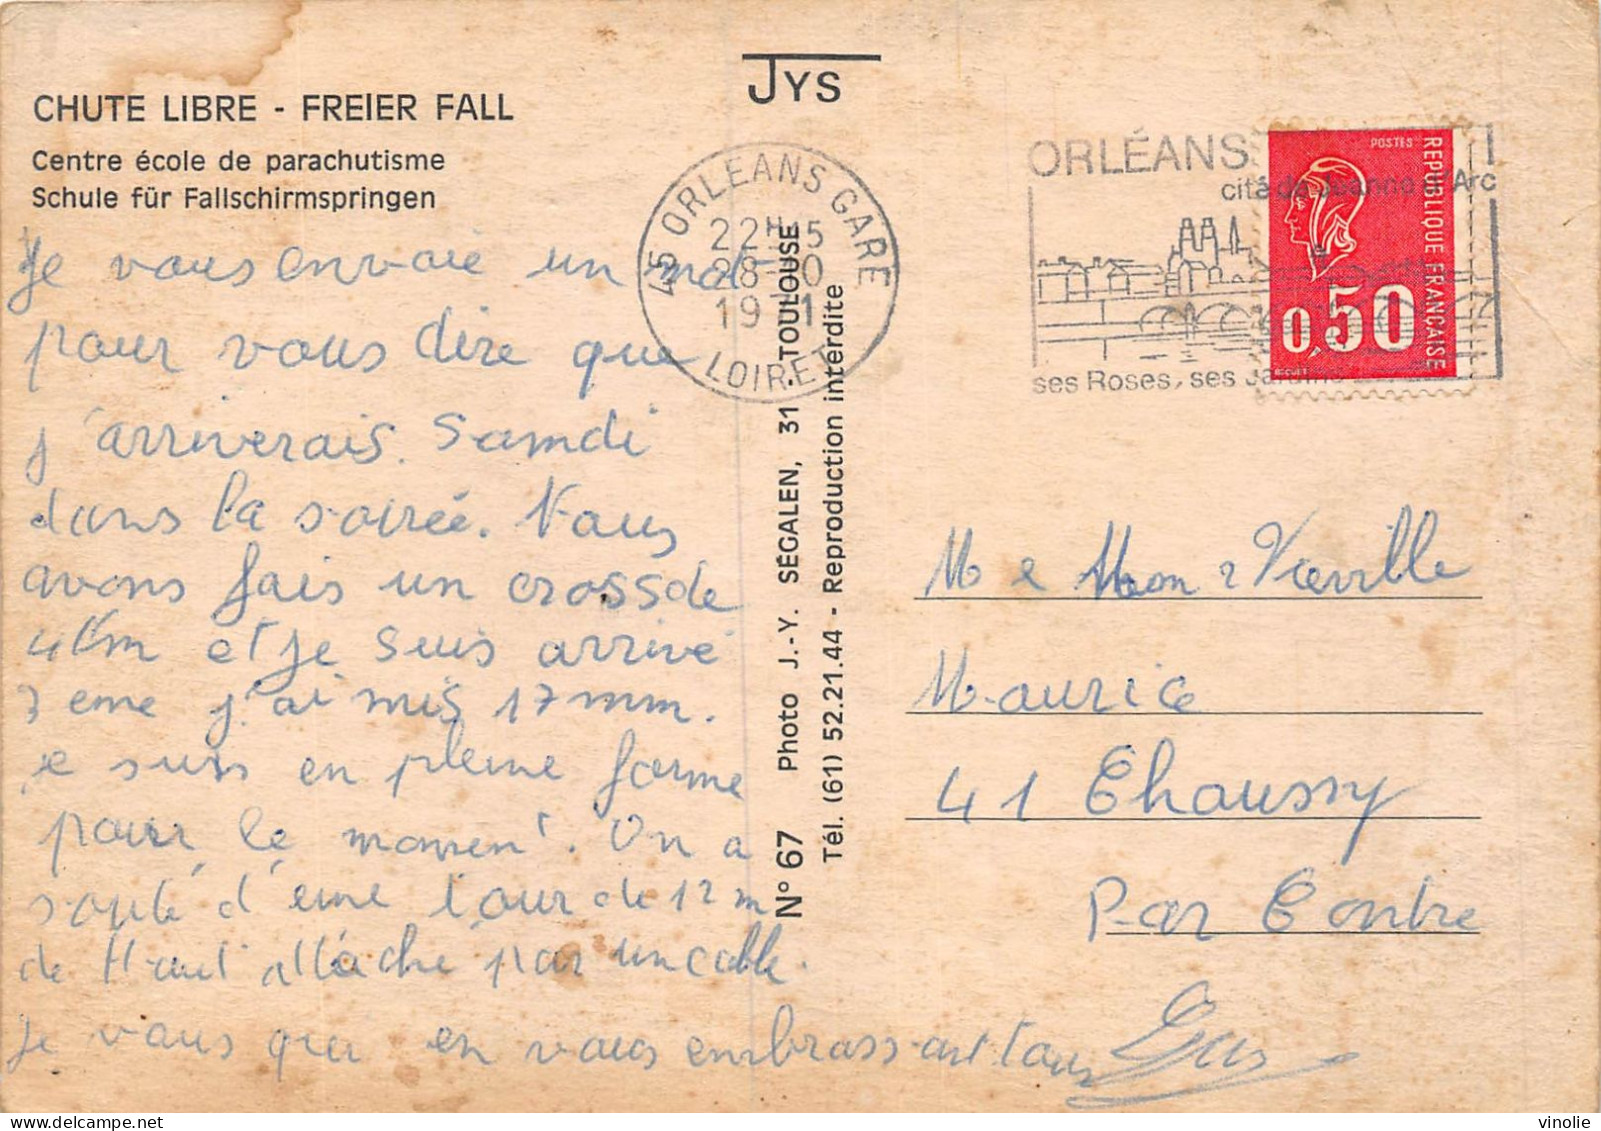 JYS
CHUTE LIBRE - FREIER FALL
Centre école de parachutisme
Schule für Fallschirmspringen
Je vous envoie un mot
pour vous dire que
j'arriverais Samdi
dans la soirée. Nous
avons fais un cross de
4km et je suis arrivé
3eme j'ai mis 17mm.
je suis en pleine forme
pour le moment. On a
soté d'une tour de 12m
de Haut attaché par un cable.
Je vous en vous embrassant tous
45 ORLEANS GARE
22H15
28-10
1971
LOIRET
N° 67 Photo J.-Y. SÉGALEN, 31 - TOULOUSE
Tél. (61) 52.21.44 - Reproduction interdite
ORLÉANS
cité de Jeanne d'Arc
ses Roses, ses Jardins
POSTES
REPUBLIQUE FRANCAISE
0,50
BEQUET
M e Mon Vieville
Maurice
41 Chaussy
Par Contre
vinolie